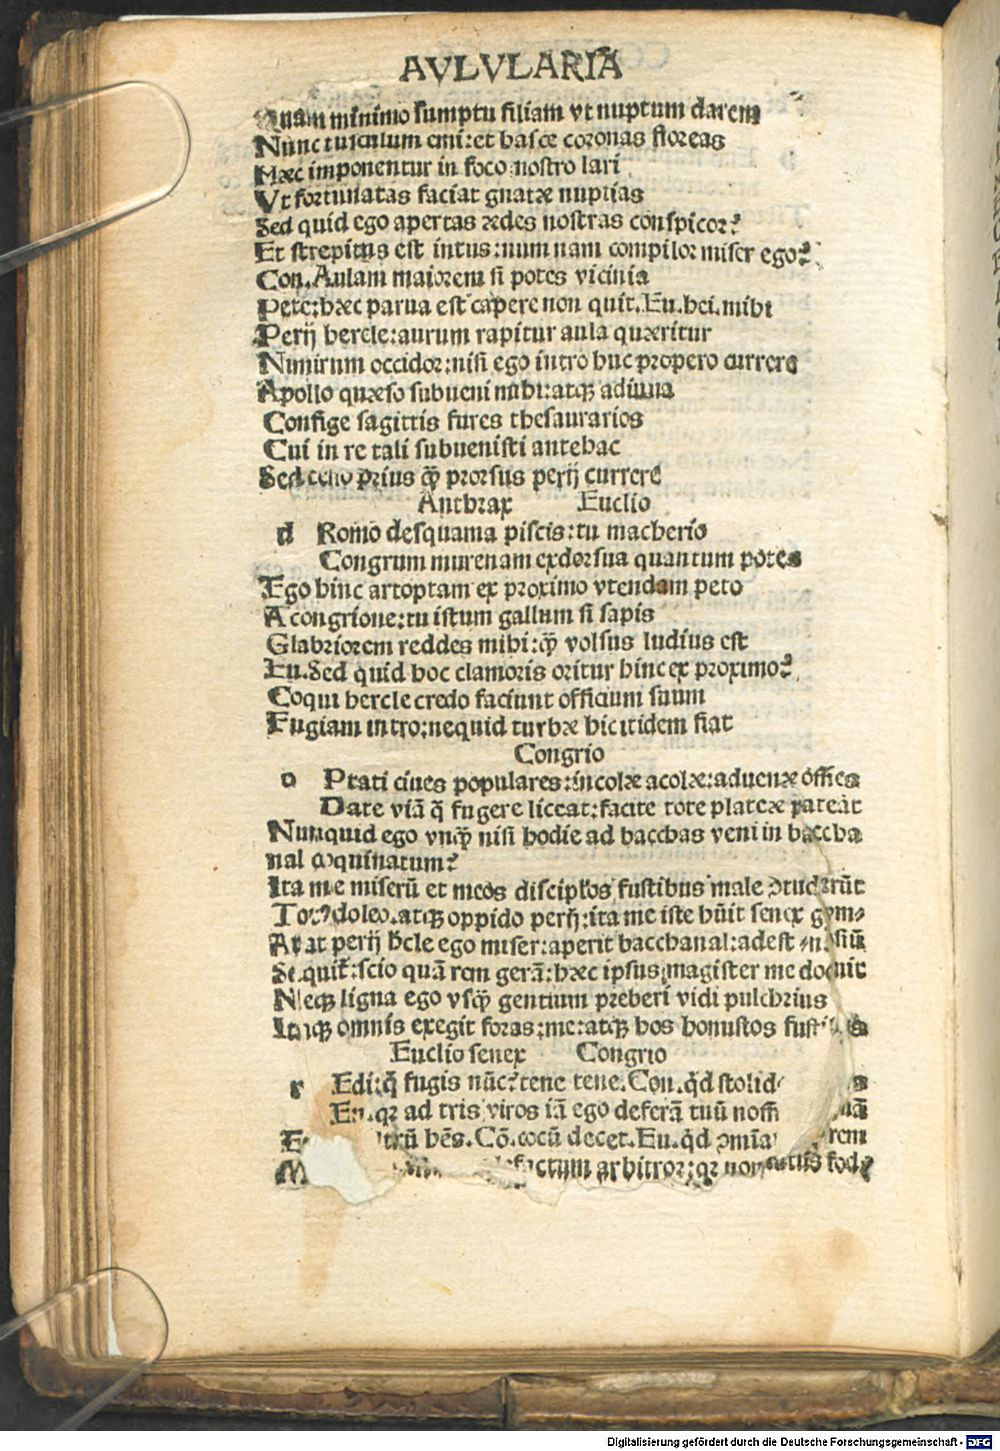 AVLVLARIA
Quam minimo sumptu filiam vt nuptum darem
Nunc tusculum emi: et hasce coronas floreas
Hæc imponentur in foco nostro lari
Vt fortunatas faciat gnatæ nuptias
Sed quid ego apertas ædes nostras conspicor?
Et strepitus est intus: num nam compilor miser ego?
Con. Aulam maiorem si potes vicinia
Pete: hæc parua est capere non quit. Eu. hei mihi
Perij hercle: aurum rapitur aula quæritur
Nimirum occidor: nisi ego intro huc propero currere
Apollo quæso subueni mihi: atq̃ adiuua
Confige sagittis fures thesaurarios
Cui in re tali subuenisti antehac
Sed cesso prius q̃ prorsus perij currere
Anthrax Euclio
d Romo desquama piscis: tu macherio
Congrum murenam exdorsua quantum potes
Ego hinc artoptam ex proximo vtendam peto
A congrione: tu istum gallum si sapis
Glabriorem reddes mihi: q̃ volsus ludius est
Eu. Sed quid hoc clamoris oritur hinc ex proximo?
Coqui hercle credo faciunt officium suum
Fugiam intro: nequid turbæ hic itidem fiat
Congrio
o Ptati ciues populares: incolæ acolæ: aduenæ õffies
Date viã q̃ fugere liceat: facite tote plateæ pateãt
Nunquid ego vnq̃ nisi hodie ad bacchas veni in baccha
nal coquinatum?
Ita me miserũ et meos discip̃los fustibus male ↄtuderũt
Totꝰ doleo. atq̃ oppido perij: ita me iste hũit senex gym⸗
At at perij h̃cle ego miser: aperit bacchanal: adest nasiũ
Sequit̃: scio quã rem gerã: hæc ipsus magister me docuit
Neq̃ ligna ego vsq̃ gentium preberi vidi pulchrius
Itaq̃ omnis exegit foras: me: atq̃ hos honustos fustibus
Euclio senex Congrio
r Edi: q̃ fugis nũc? tene tene. Con. q̃d stolid
Eu. qꝛ ad tris viros iã ego deferã tuũ nom̃
trũ h̃es. Cõ. cocũ decet. Eu. q̃d ↄmĩa
factum arbitror: qꝛ non latus fod